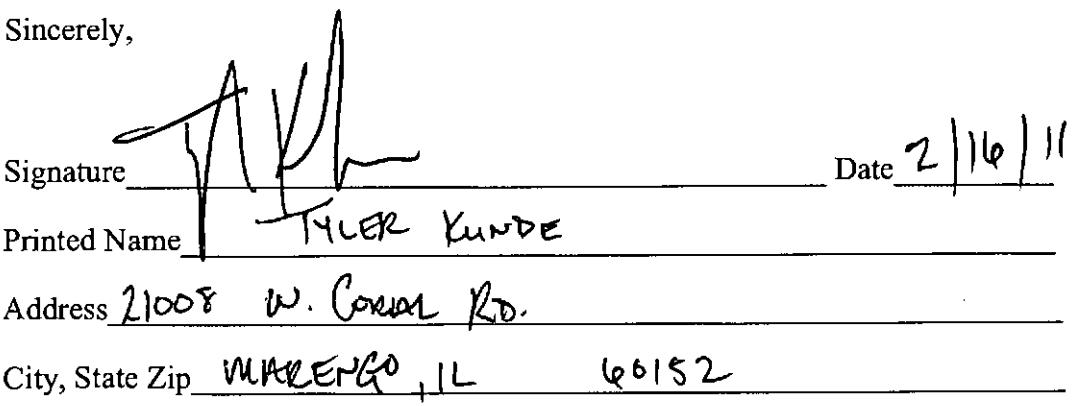 Sincerely,
Signature Date 2/16/11
Printed Name TYLER KUNDE
Address 21008 W. CORAL RD.
City, State Zip MARENGO, IL 60152